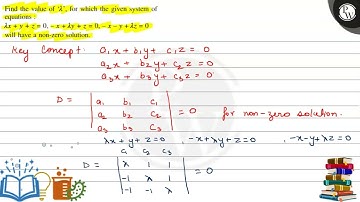 Find the value of 'λ', for which the given system of
equations :
λx + y + z = 0, – x + λy + z = 0, – x – y + λz = 0
will have a non-zero solution.
Key Concept: a₁x + b₁y + c₁z = 0
a₂x + b₂y + c₂z = 0
a₃x + b₃y + c₃z = 0
D = | a₁ b₁ c₁ |
| a₂ b₂ c₂ | = 0 for non-zero solution.
| a₃ b₃ c₃ |
λx + y + z = 0 , -x + λy + z = 0 , -x - y + λz = 0
c₁ c₂ c₃
D = | λ 1 1 |
| -1 λ 1 | = 0
| -1 -1 λ |